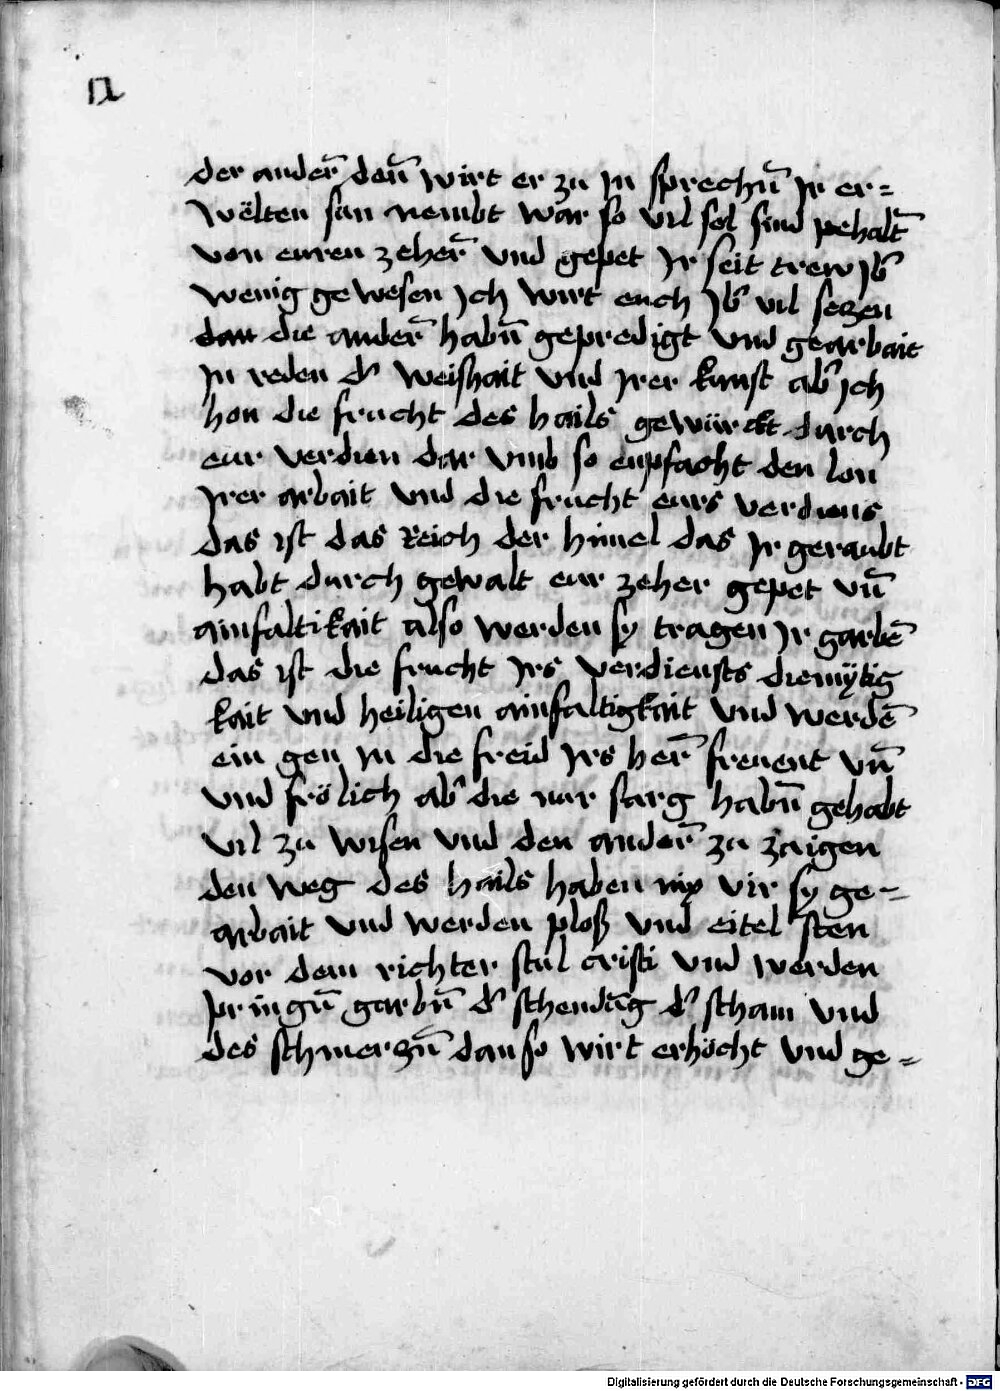 der anderñ deñ wirt er zu in sprechñ Ir er=
wëlten sun nembt war so vil sel sind pehaltñ
von euren zeherñ und gepet Ir seit trew jb̄
wenig gewesen Ich wirt euch jb̄ vil seczen
dan die anderñ habñ gepredigt und gearbait
In reden d' weishait und Irer kunst ab' Ich
hon die frucht des hails gewürckt durch
eur verdien dar vmb so enpfacht den lon
Irer arbait und die frucht eurs verdiens
das ist das Reich der himel das Ir geraubt
habt durch gewalt eur zeher gepet vñ
ainfaltikait also werden sy tragen Ir garbē
das ist die frucht Irs verdiensts diemÿtig
kait und heiligen ainfaltigkait und werdē
ein gen In die freid Irs herñ freuent vñ
und frölich ab' die nur sarg habñ gehabt
vil zu wisen und den anderñ zu zaigen
den weg des hails haben nix vir sy ge-
arbait und werden ploß und eitel sten
vor dem richter stul cristi und werden
pringñ garbñ d' schendūg d' scham und
des schmerczñ dan so wirt erhöcht und ge=
Digitalisierung gefördert durch die Deutsche Forschungsgemeinschaft - DFG